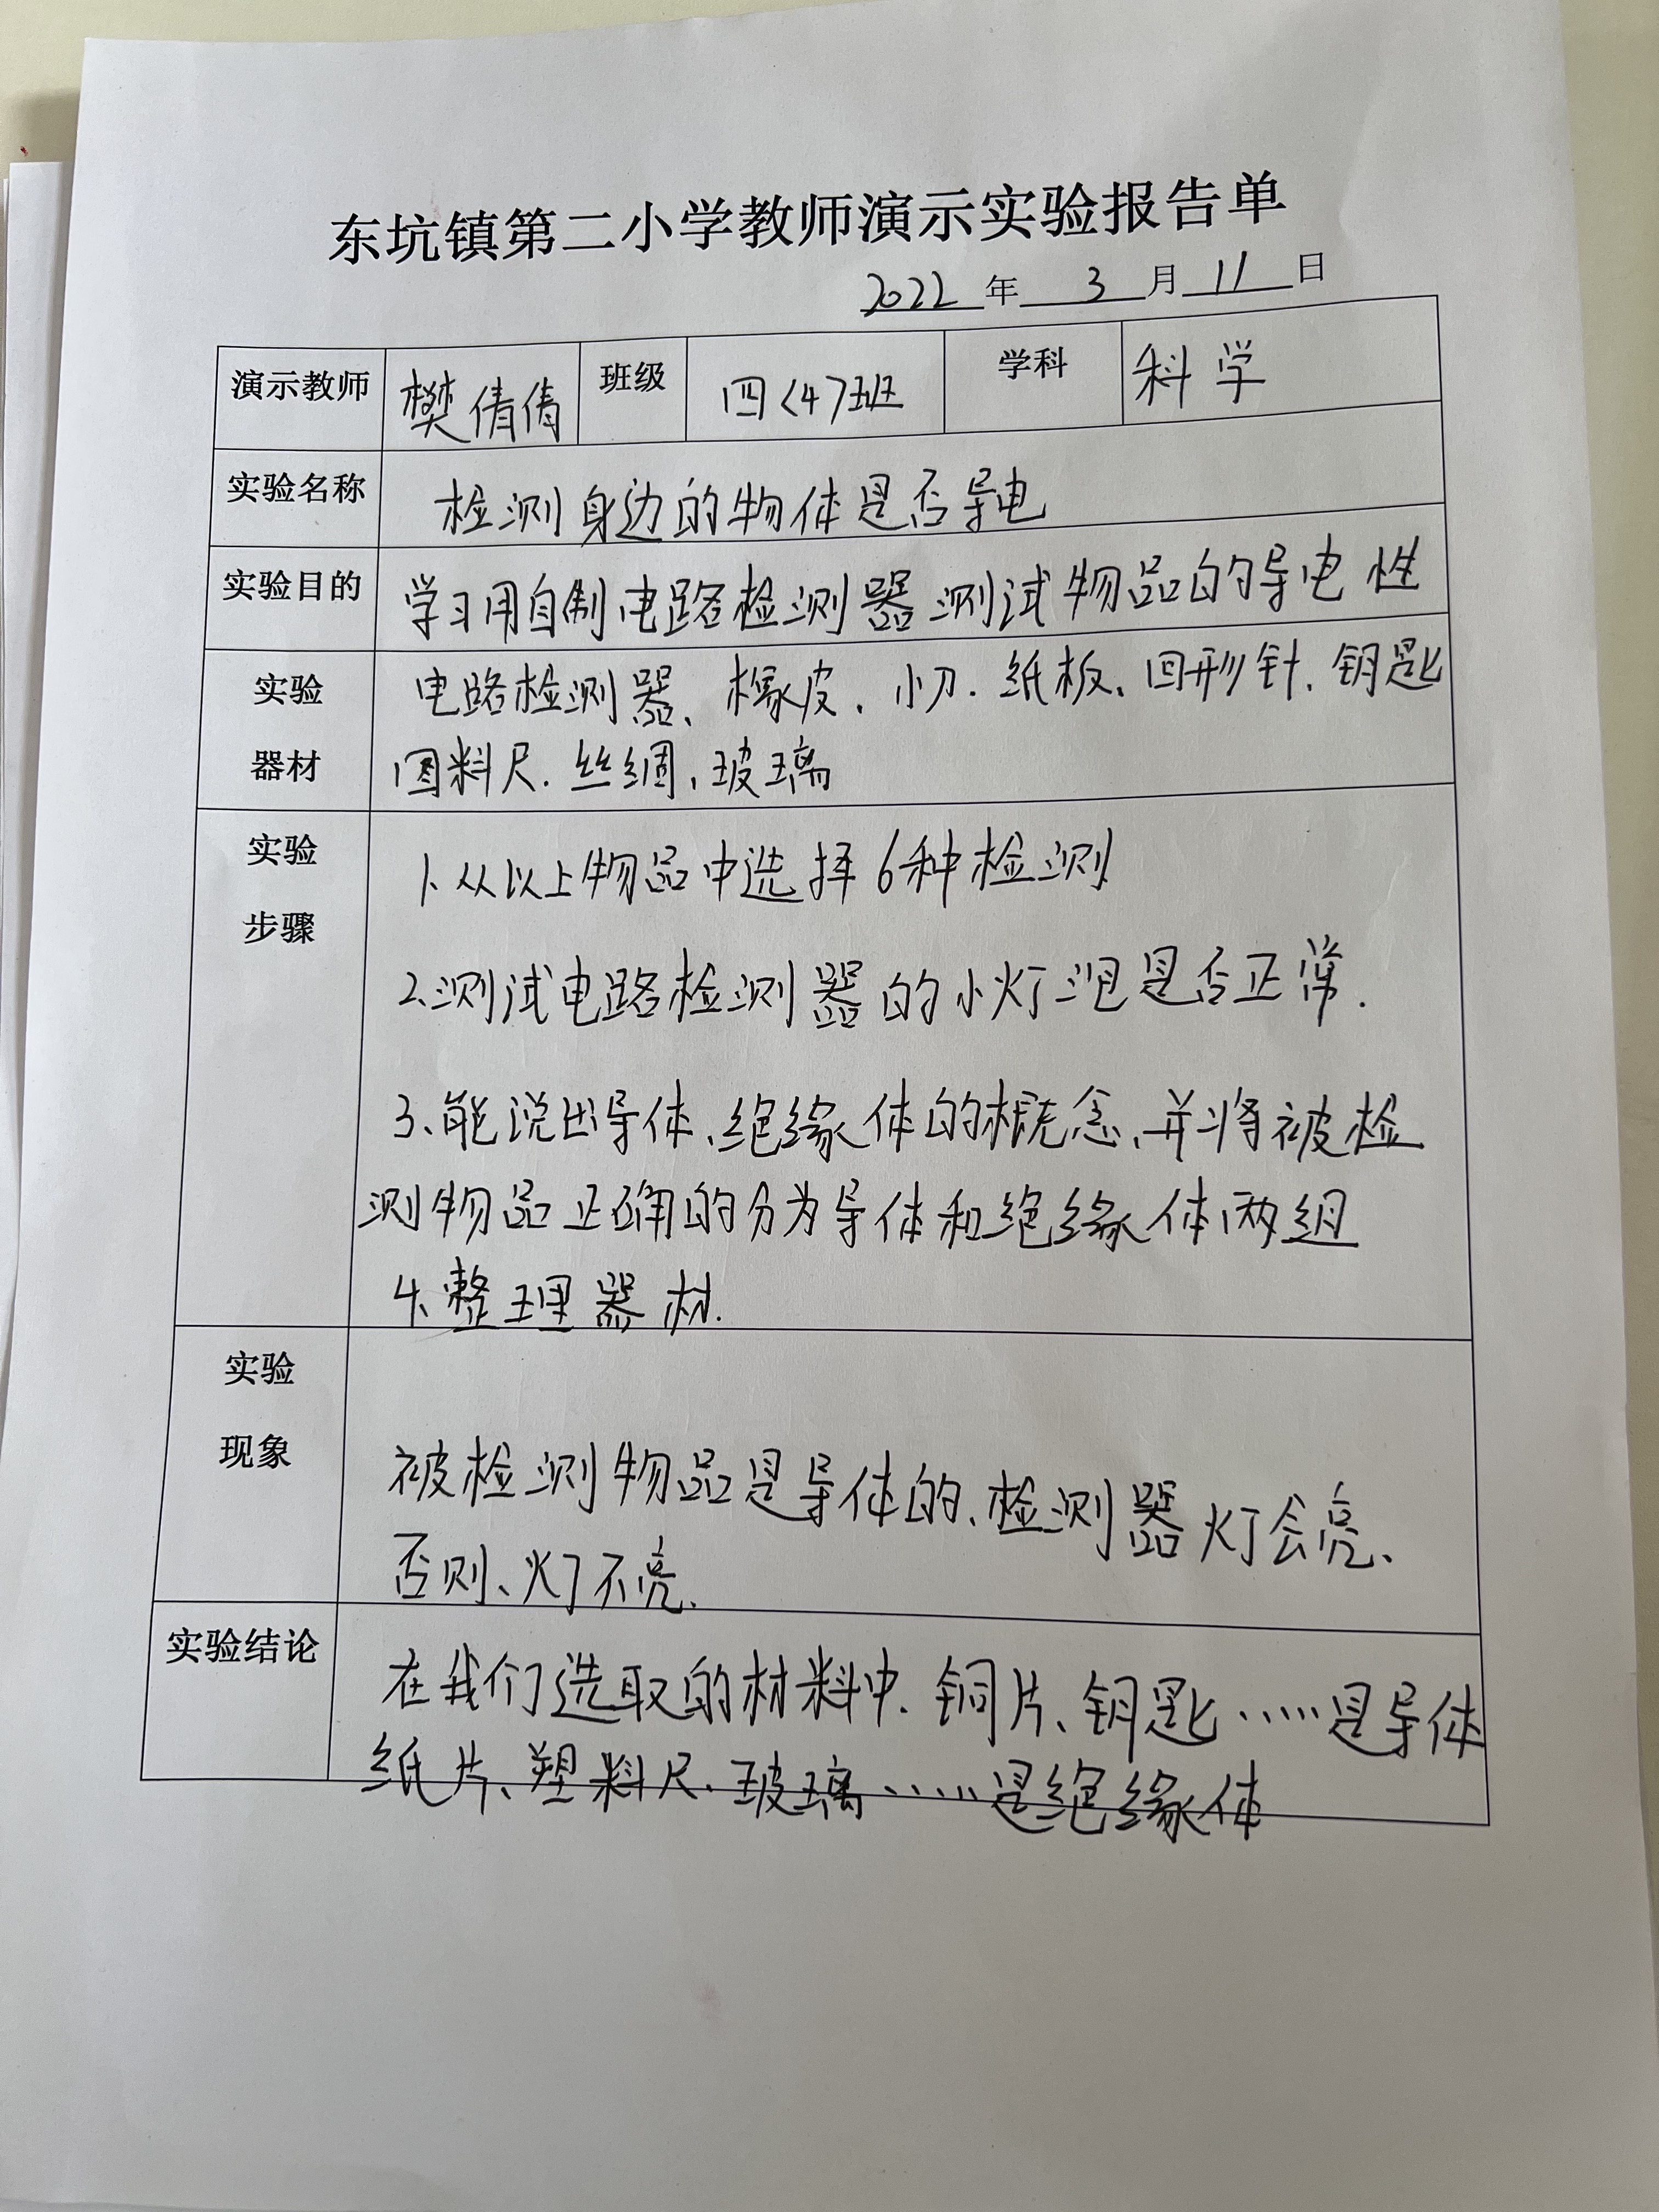 东坑镇第二小学教师演示实验报告单
2022年3月11日
演示教师 樊倩倩 班级 四(4)班 学科 科学
实验名称 检测身边的物体是否导电
实验目的 学习用自制电路检测器测试物品的导电性
实验 电路检测器、橡皮、小刀、纸板、回形针、钥匙
器材 料尺、丝绸、玻璃
实验 1、从以上物品中选择6种检测
步骤
2、测试电路检测器的小灯泡是否正常.
3、能说出导体、绝缘体的概念、并将被检
测物品正确的分为导体和绝缘体两组
4、整理器材.
实验
现象
被检测物品是导体的、检测器灯会亮、
否则、灯不亮.
实验结论 在我们选取的材料中.铜片、钥匙……是导体
纸片、塑料尺、玻璃……是绝缘体